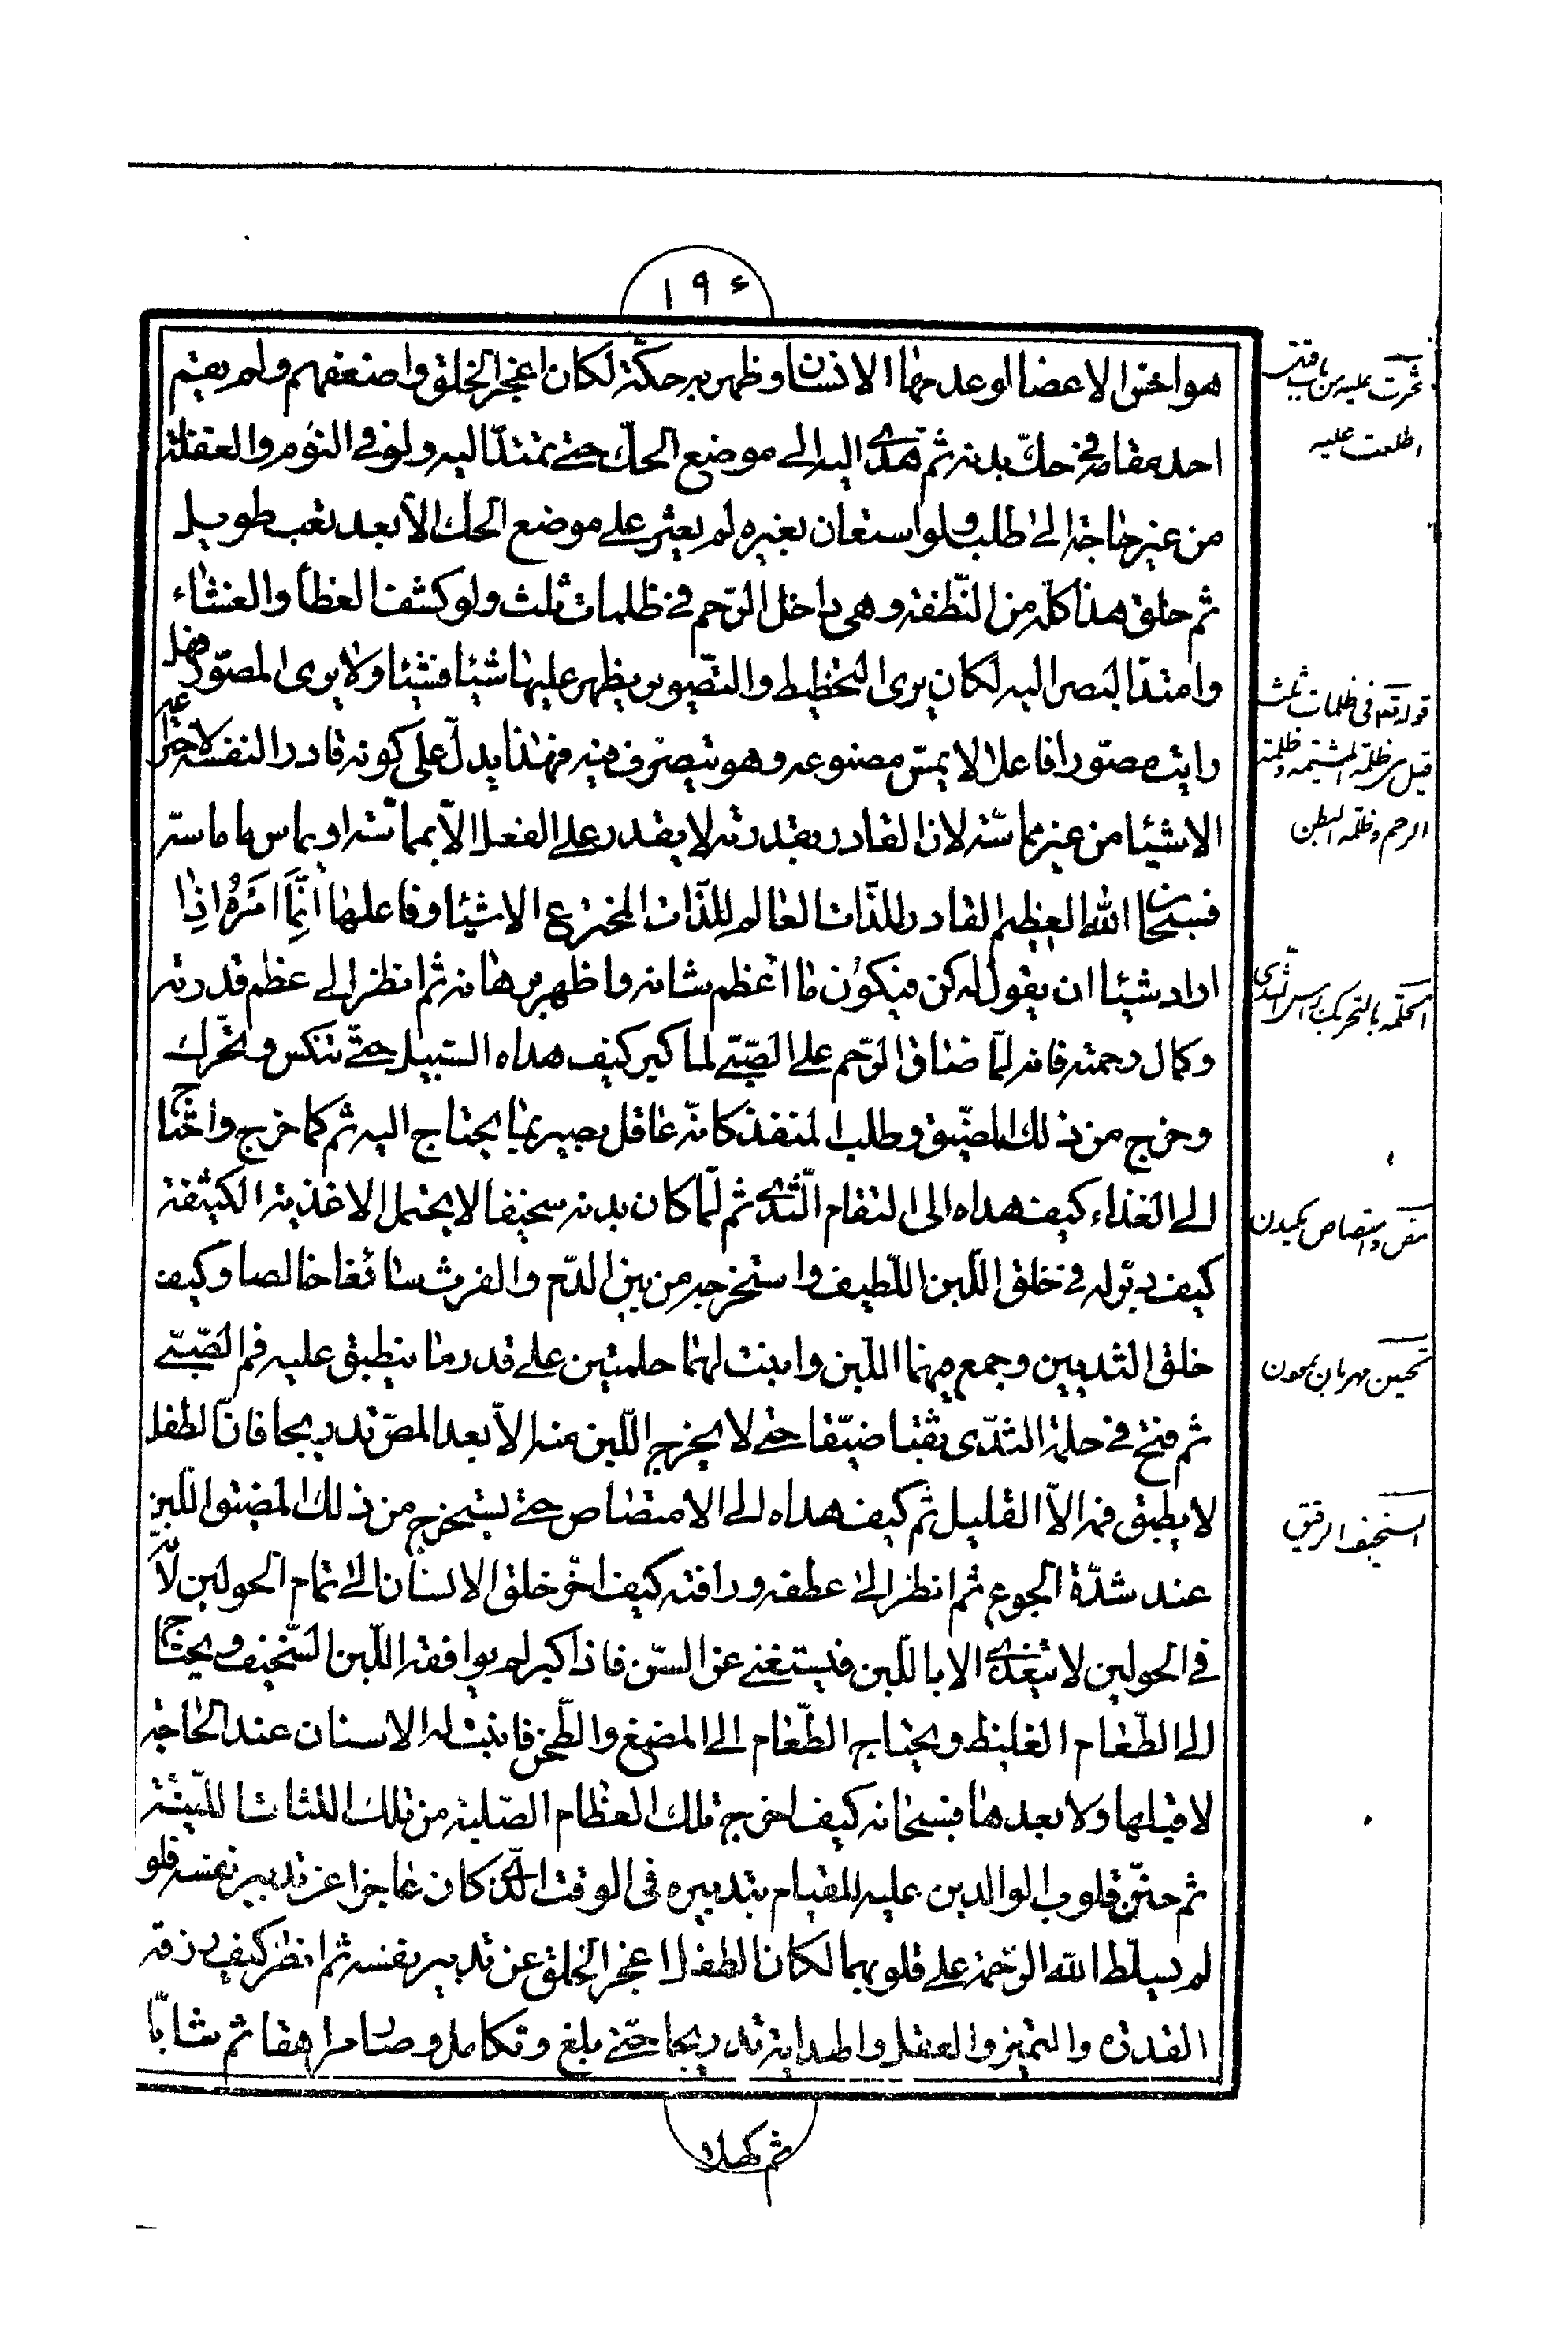 ١٩٤
هو اخس الاعضا لو عدمها الانسان وظهر به حكّة لكان اعجز الخلق واضعفهم ولم يقم
احد مقامه في حكّ بدنه ثم هدى اليد الى موضع الحكّ حتى تمتدّ اليه ولو في النوم والغفلة
من غير حاجة الى طلب ولو استعان بغيره لم يعثر على موضع الحكّ الا بعد تعب طويل
ثم خلق هذا كلّه من النّطفة وهي داخل الرّحم في ظلمات ثلث ولو كشف الغطا والغشاء
وامتدّ البصر اليه لكان يرى التخطيط والتصوير يظهر عليها شيئا فشيئا ولا يرى المصوّر فهل
رايت مصوّرا فاعلا لا يمسّ مصنوعه وهو يتصرف فيه فهذا يدلّ على كونه قادر النفسه لاختراع
الاشيا من غير مماسّة لان القادر بقدرته لا يقدر على الفعل الّا بمماسّته او يماس ما ماسه
فسبحان الله العظيم القادر للذّات العالم للذّات المخترع الاشيا وفاعلها انّما امره اذا
اراد شيئا ان يقول له كن فيكون ما اعظم شانه واظهر برهانه ثم انظر الى عظم قدرته
وكمال رحمته فانه لمّا ضاق الرّحم على الصّبيّ لما كبر كيف هداه السّبيل حتّى تنكس وتحرّك
وخرج من ذلك المضيق وطلب المنفذ كانّه عاقل بصير بما يحتاج اليه ثم كما خرج واحتاج
الى الغذاء كيف هداه الى التقام الثّدي ثم لمّا كان بدنه سخيفا لا يحتمل الاغذية الكثيفة
كيف دبّر له في خلق اللّبن اللّطيف واستخرجه من بين الدّم والفرث سائغا خالصا وكيف
خلق الثديين وجمع فيهما اللّبن وانبت لهما حلمتين على قدر ما ينطبق عليه فم الصّبيّ
ثم فتح في حلمة الثدي ثقبا ضيّقا حتى لا يخرج اللّبن منه الّا بعد المصّ تدريجا فانّ الطفل
لا يطيق منه الّا القليل ثم كيف هداه الى الامتصاص حتى يستخرج من ذلك المضيق اللّبن
عند شدّة الجوع ثم انظر الى عطفه ورافته كيف اخّر خلق الاسنان الى تمام الحولين لانّه
في الحولين لا يتغذى الا باللّبن فيستغني عن السّن فاذا كبر لم يوافقه اللّبن السّخيف ويحتاج
الى الطّعام الغليظ ويحتاج الطّعام الى المضغ والطّحن فانبت له الاسنان عند الحاجة
لا قبلها ولا بعدها فسبحانه كيف اخرج تلك العظام الصّلبة من تلك اللثات اللّيّنة
ثم حنّن قلوب الوالدين عليه للقيام بتدبيره في الوقت الّذي كان عاجزا عن تدبير نفسه فلو
لم يسلّط الله الرّحمة على قلوبهما لكان الطفل اعجز الخلق عن تدبير نفسه ثم انظر كيف رزقه
القدرة والتميز والعقل والهداية تدريجا حتّى بلغ وتكامل وصار مراهقا ثم شابّا
ثم كهلا
اطلعت عليه
قوله تع في ظلمات ثلث
قيل هي ظلمة المشيمة وظلمة
الرحم وظلمة البطن
الحلمة بالتحريك راس الثدي
مص وامتصاص مكيدن
تحنين مهربان نمودن
السخيف الرقيق